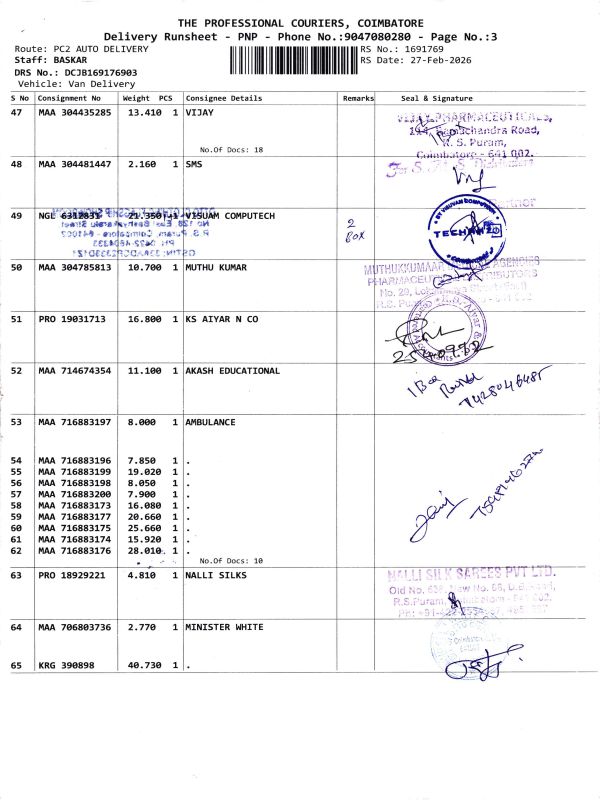 THE PROFESSIONAL COURIERS, COIMBATORE
Delivery Runsheet - PNP - Phone No.:9047080280 - Page No.:3
Route: PC2 AUTO DELIVERY RS No.: 1691769
Staff: BASKAR RS Date: 27-Feb-2026
DRS No.: DCJB169176903
Vehicle: Van Delivery
S No Consignment No Weight PCS Consignee Details Remarks Seal & Signature
47 MAA 304435285 13.410 1 VIJAY
VIJAY PHARMACEUTICALS,
Ramachandra Road,
R. S. Puram,
Coimbatore - 641 002.
No.Of Docs: 18
48 MAA 304481447 2.160 1 SMS
For S.
Partner
49 NGE 6312831 21.350 1 VISUAM COMPUTECH
2
BOX
TECH
COIMBATORE
50 MAA 304785813 10.700 1 MUTHU KUMAR
MUTHUKKUMAAR AGENCIES
PHARMACEUTICAL DISTRIBUTORS
No. 29,
R.S. Puram
51 PRO 19031713 16.800 1 KS AIYAR N CO
52 MAA 714674354 11.100 1 AKASH EDUCATIONAL
1 Box
53 MAA 716883197 8.000 1 AMBULANCE
54 MAA 716883196 7.850 1 .
55 MAA 716883199 19.020 1 .
56 MAA 716883198 8.050 1 .
57 MAA 716883200 7.900 1 .
58 MAA 716883173 16.080 1 .
59 MAA 716883177 20.660 1 .
60 MAA 716883175 25.660 1 .
61 MAA 716883174 15.920 1 .
62 MAA 716883176 28.010 1 .
No.Of Docs: 10
63 PRO 18929221 4.810 1 NALLI SILKS
NALLI SILK SAREES PVT LTD.
Old No. New No. 
R.S.Puram, Coimbatore - 641 002.
64 MAA 706803736 2.770 1 MINISTER WHITE
65 KRG 390898 40.730 1 .